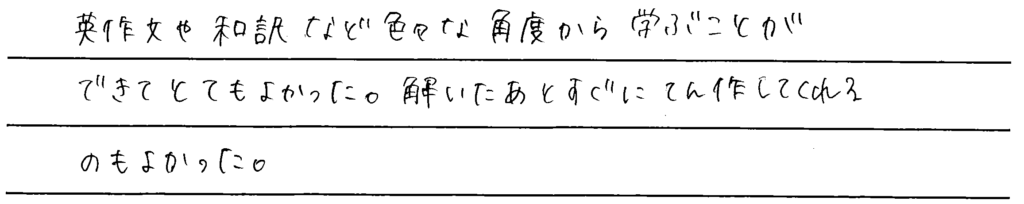 英作文や和訳など色々な角度から学ぶことが
できてとてもよかった。解いたあとすぐにてん作してくれる
のもよかった。